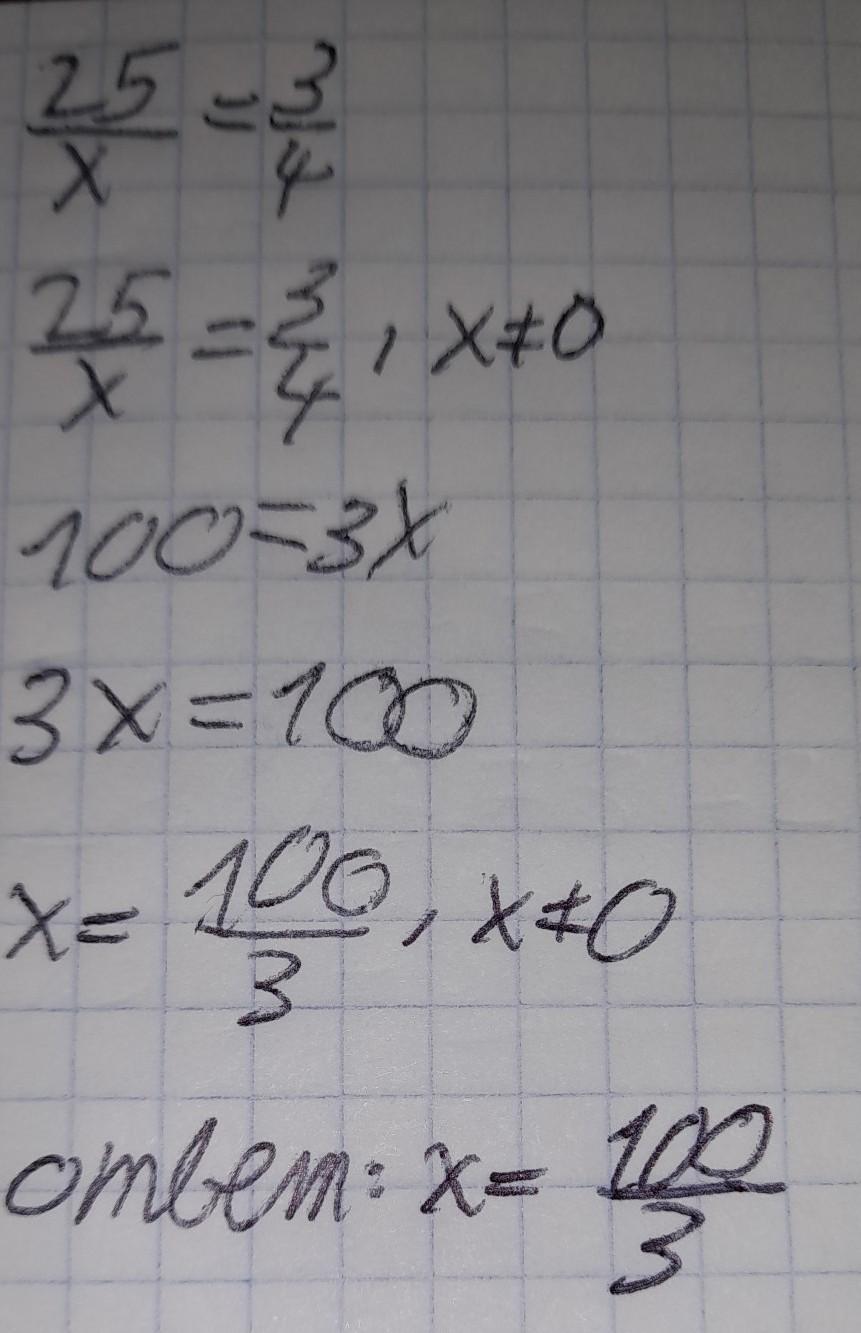 25/x = 3/4
25/x = 3/4, x≠0
100=3x
3x=100
x= 100/3, x≠0
ответ: x= 100/3